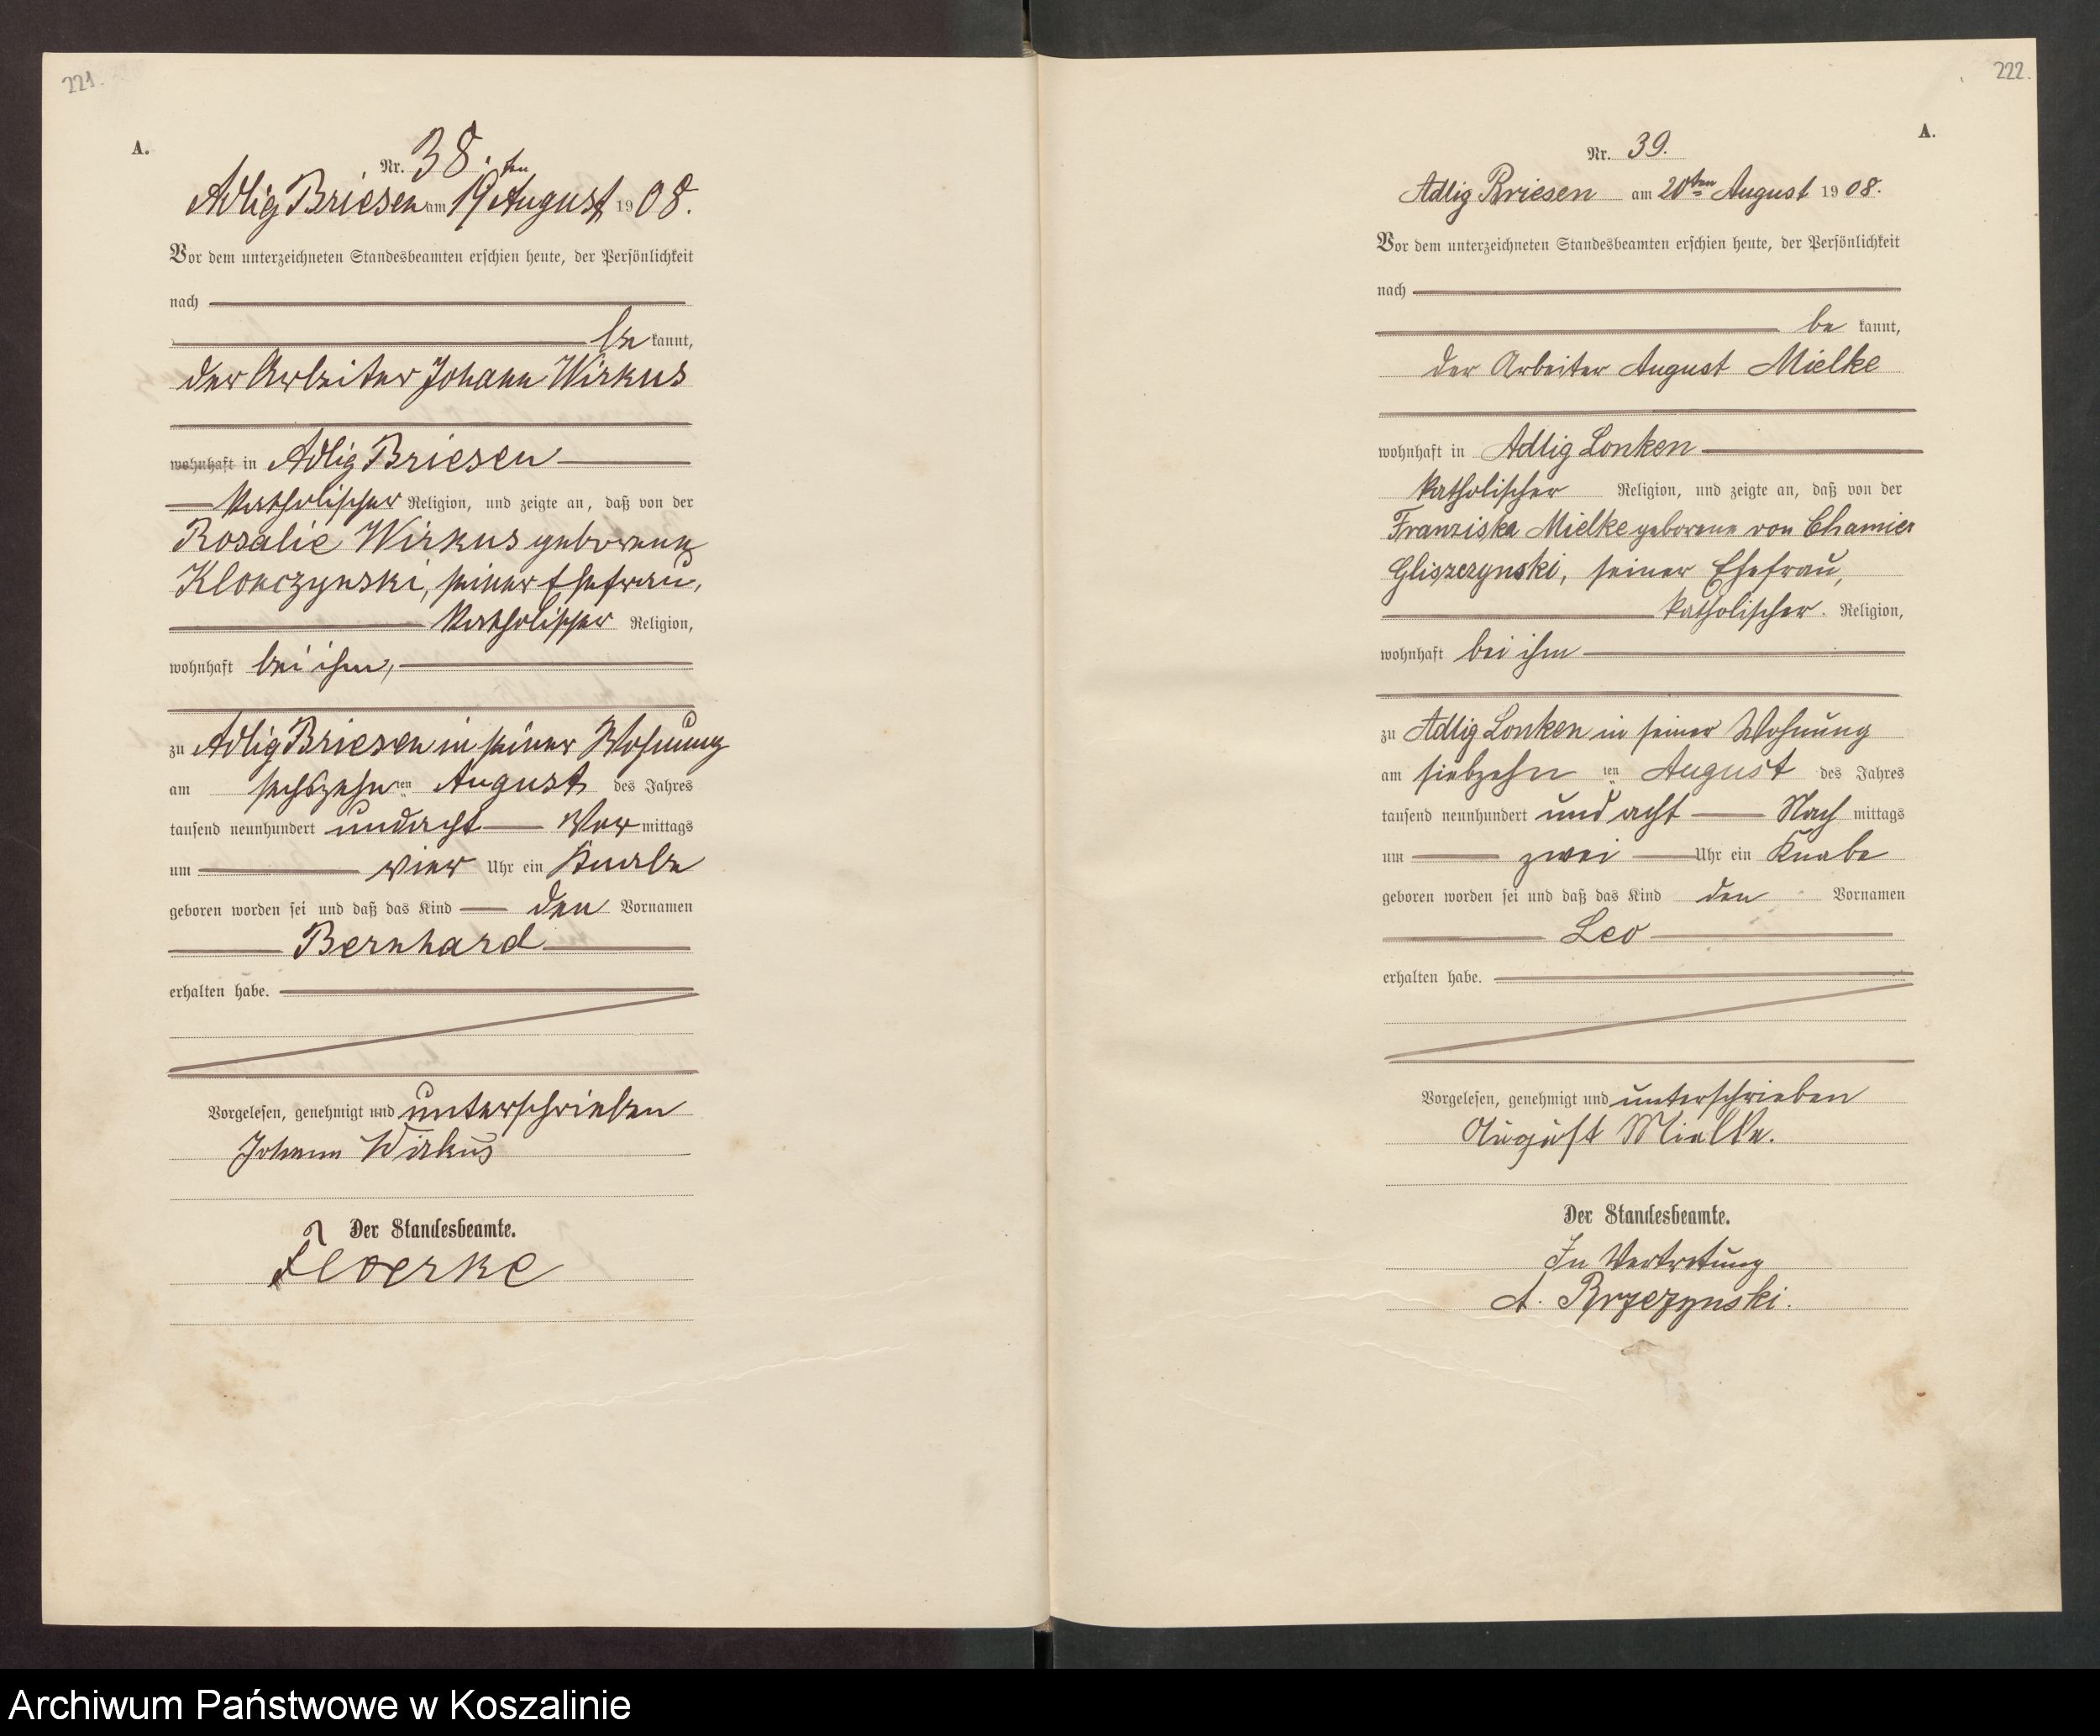 221.
A.
Nr. 38.
Adlig Briesen am 19ten August 1908.
Vor dem unterzeichneten Standesbeamten erschien heute, der Persönlichkeit
nach
be kannt,
der Arbeiter Johann Wirkus
wohnhaft in Adlig Briesen
katholischer Religion, und zeigte an, daß von der
Rosalie Wirkus geborene
Klonczynski, seiner Ehefrau,
katholischer Religion,
wohnhaft bei ihm,
zu Adlig Briesen in seiner Wohnung
am sechszehn ten August des Jahres
tausend neunhundert und acht Vor mittags
um vier Uhr ein Knabe
geboren worden sei und daß das Kind den Vornamen
Bernhard
erhalten habe.
Vorgelesen, genehmigt und unterschrieben
Johann Wirkus
Der Standesbeamte.
Floerke
222.
A.
Nr. 39.
Adlig Briesen am 20ten August 1908.
Vor dem unterzeichneten Standesbeamten erschien heute, der Persönlichkeit
nach
be kannt,
der Arbeiter August Mielke
wohnhaft in Adlig Lonken
katholischer Religion, und zeigte an, daß von der
Franziska Mielke geborene von Chamier
Gliszczynski, seiner Ehefrau,
katholischer Religion,
wohnhaft bei ihm
zu Adlig Lonken in seiner Wohnung
am siebzehn ten August des Jahres
tausend neunhundert und acht Nach mittags
um zwei Uhr ein Knabe
geboren worden sei und daß das Kind den Vornamen
Leo
erhalten habe.
Vorgelesen, genehmigt und unterschrieben
August Mielke.
Der Standesbeamte.
In Vertretung
A. Brzezynski.
Archiwum Państwowe w Koszalinie